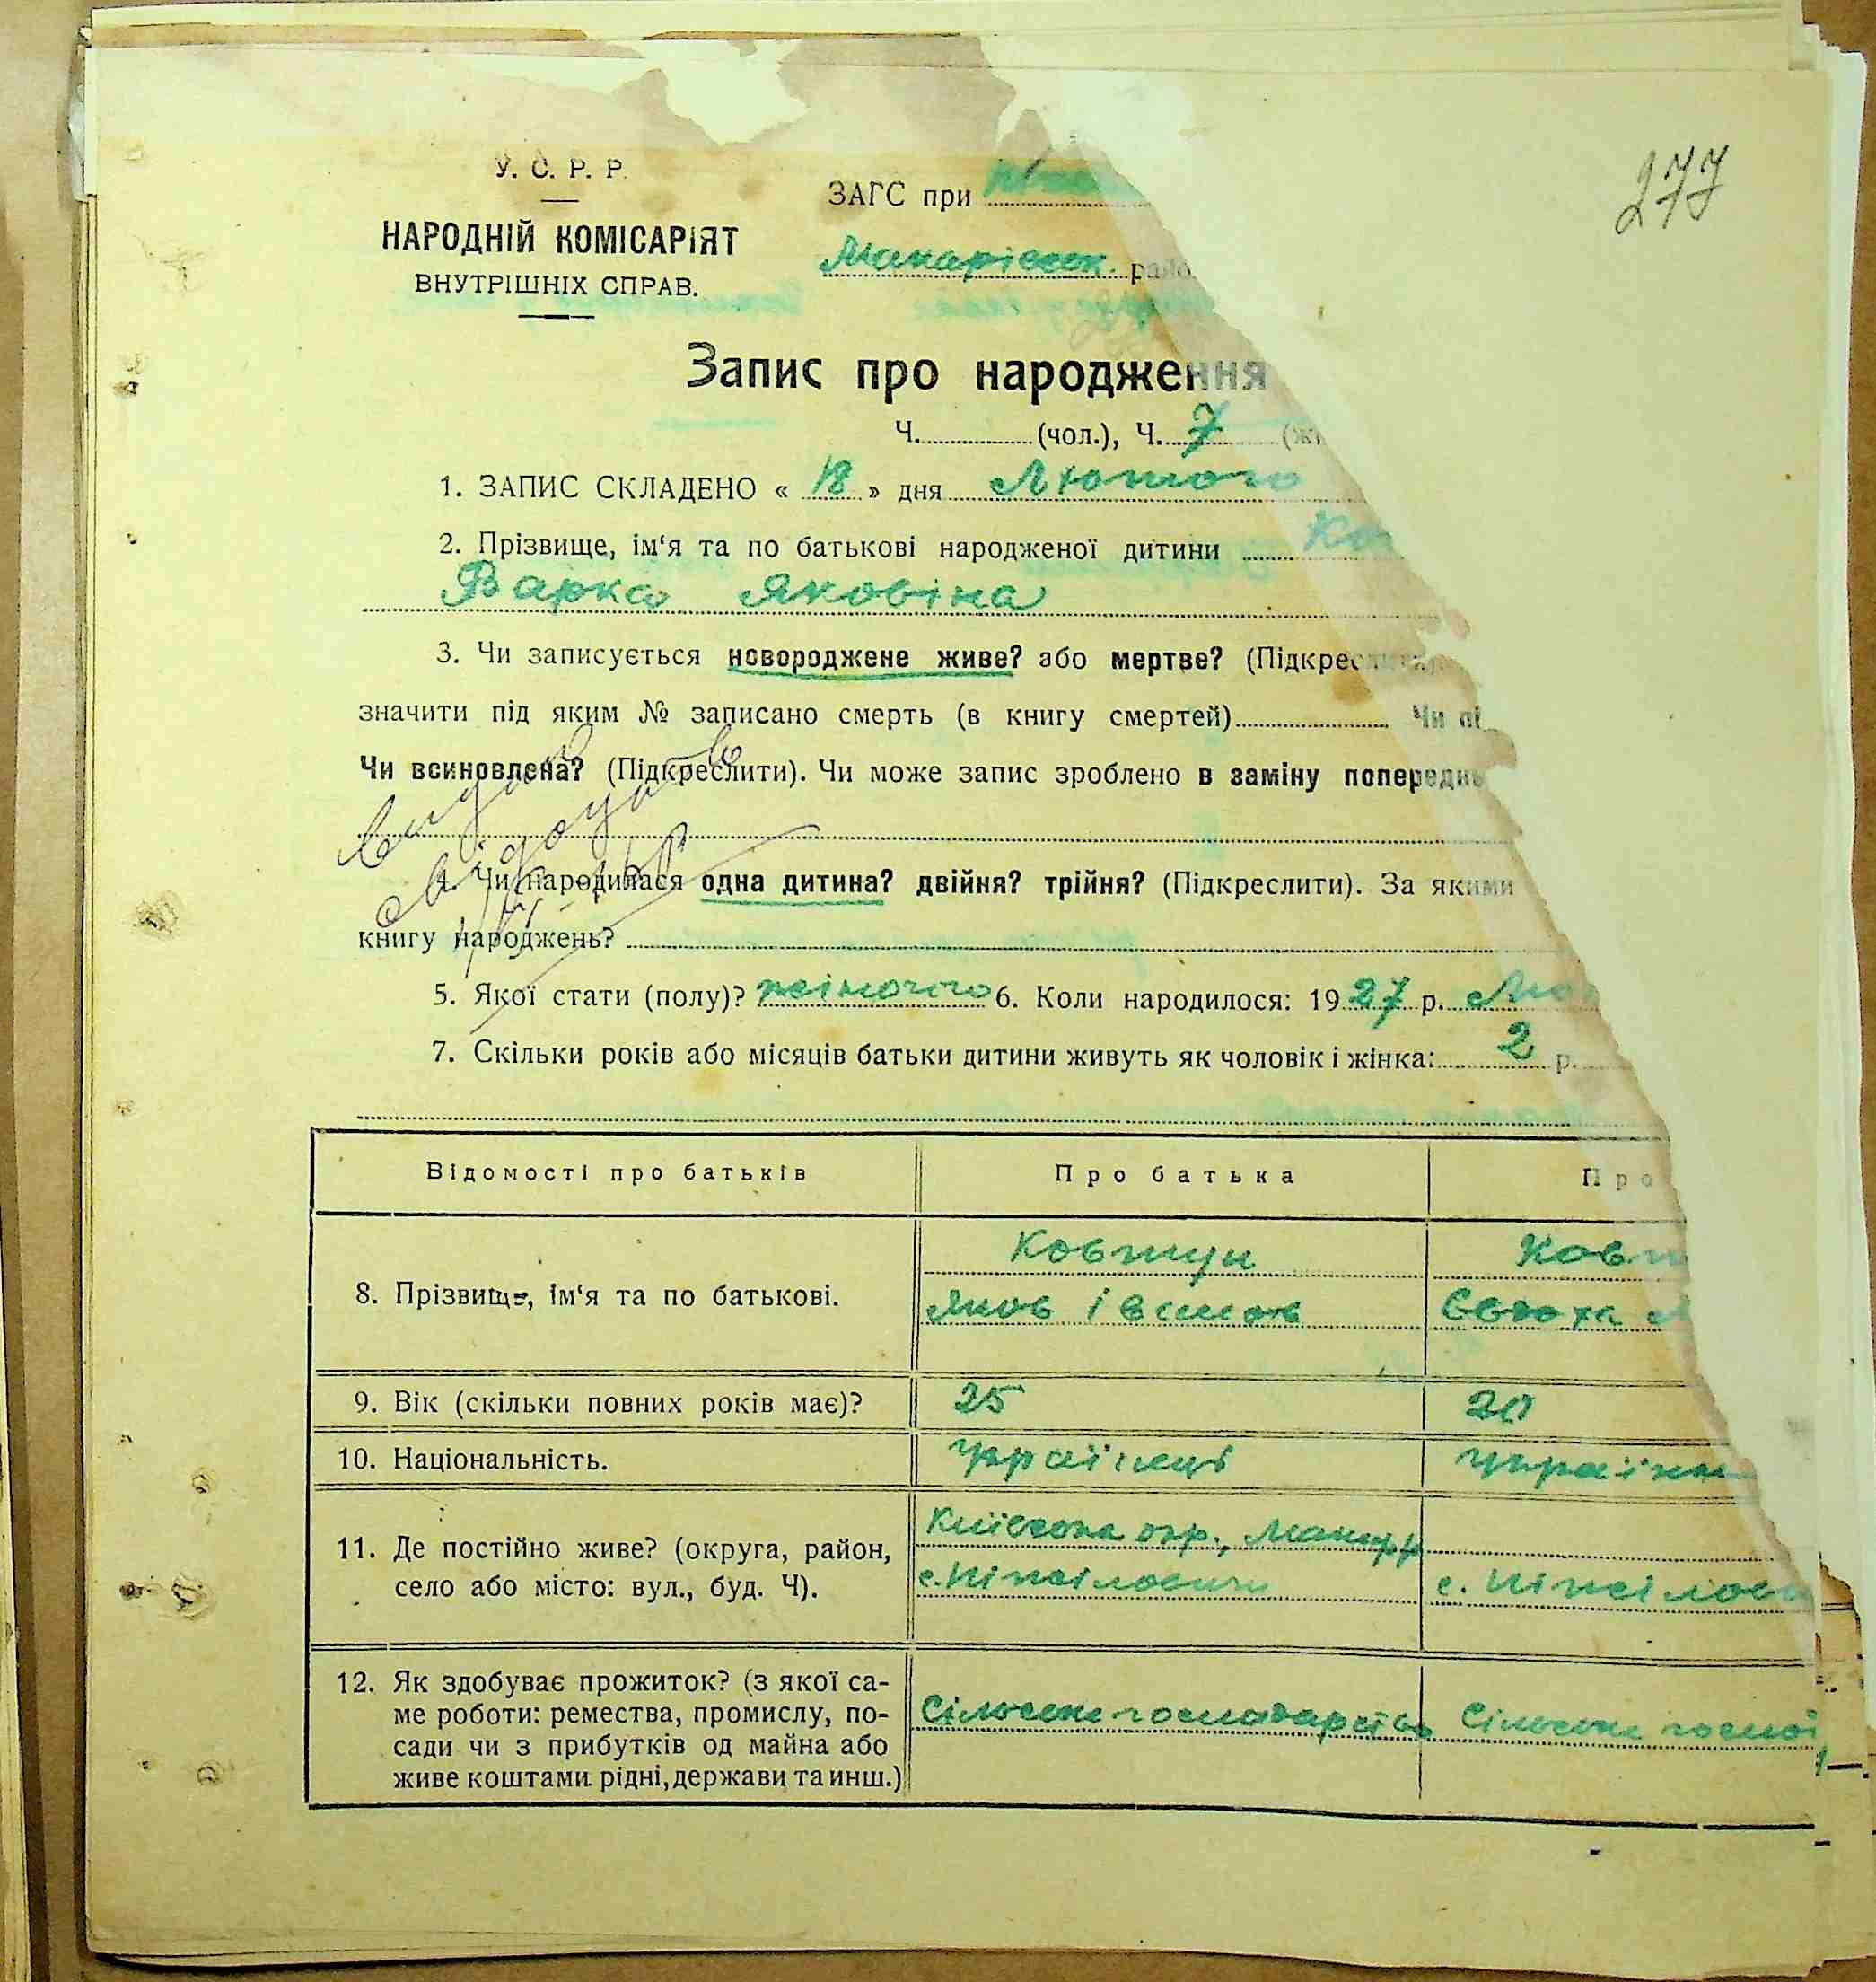 277
У. С. Р. Р.
НАРОДНІЙ КОМІСАРІЯТ
ВНУТРІШНІХ СПРАВ.
ЗАГС при
Макарівськ. райо
Запис про народження
Ч. (чол.), Ч. 7 (ж
1. ЗАПИС СКЛАДЕНО « 18 » дня Лютого
2. Прізвище, ім‘я та по батькові народженої дитини Ко
Варка Яковіна
3. Чи записується новороджене живе? або мертве? (Підкреслити)
значити під яким № записано смерть (в книгу смертей) Чи пі
Чи всиновлена? (Підкреслити). Чи може запис зроблено в заміну попередн
4. Чи народилася одна дитина? двійня? трійня? (Підкреслити). За якими
книгу народжень?
5. Якої стати (полу)? жіночого 6. Коли народилося: 1927 р. Лю
7. Скільки років або місяців батьки дитини живуть як чоловік і жінка: 2 р.
Відомості про батьків Про батька Про
8. Прізвище, ім‘я та по батькові.
Ковтун Ковт
Яков Івanов Євдоха
9. Вік (скільки повних років має)? 25 20
10. Національність. українець україн
11. Де постійно живе? (округа, район,
село або місто: вул., буд. Ч).
Київська окр., Макар р
с. Ніжиловичи с. Ніжилов
12. Як здобуває прожиток? (з якої са-
ме роботи: ремества, промислу, по-
сади чи з прибутків од майна або
живе коштами рідні, держави та инш.)
Сільське господарство Сільське господ